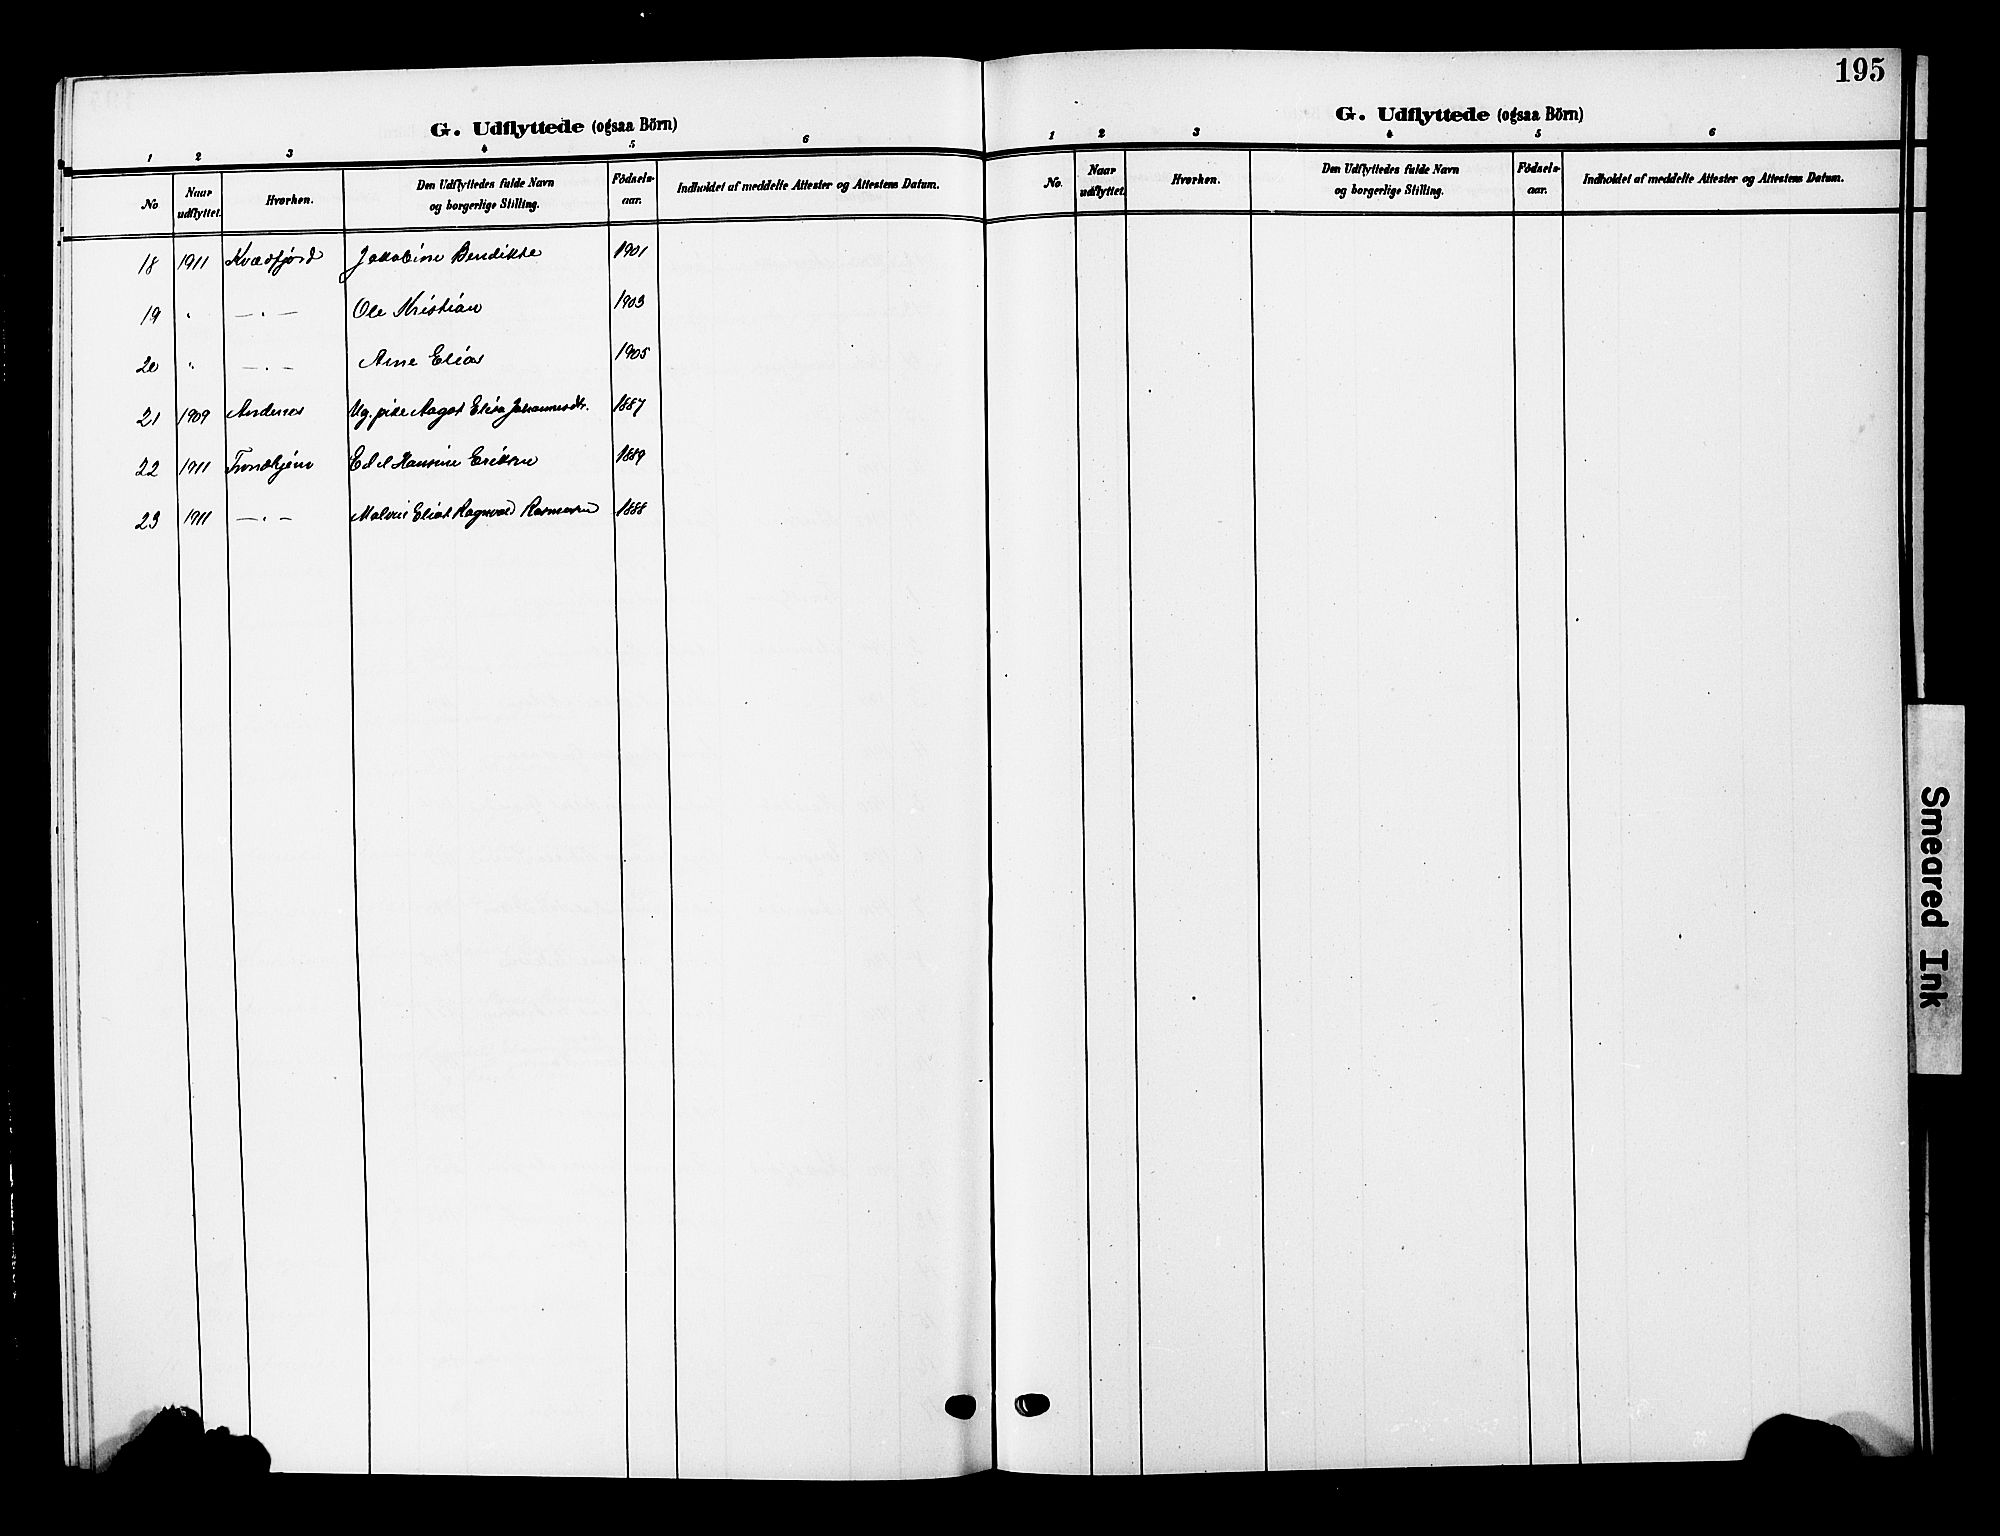 195
G. Udflyttede (ogsaa Börn)
1 2 3 4 5 6
No
Naar udflyttet.
Hvorhen.
Den Udflyttedes fulde Navn og borgerlige Stilling.
Födsels-aar.
Indholdet af meddelte Attester og Attestens Datum.
18 1911 Kvædfjord Jakobine Bendikte 1901
19 " — " — Ole Kristian 1903
20 " — " — Arne Elias 1905
21 1909 Andenes Ug. pike Aagot Elisa Johannesdtr. 1887
22 1911 Trondhjem Edel Hansine Eriksen 1889
23 1911 — " — Elias Ragnvald Rasmussen 1888
G. Udflyttede (ogsaa Börn)
1 2 3 4 5 6
No.
Naar udflyttet.
Hvorhen.
Den Udflyttedes fulde Navn og borgerlige Stilling.
Födsels-aar.
Indholdet af meddelte Attester og Attestens Datum.
Smeared Ink